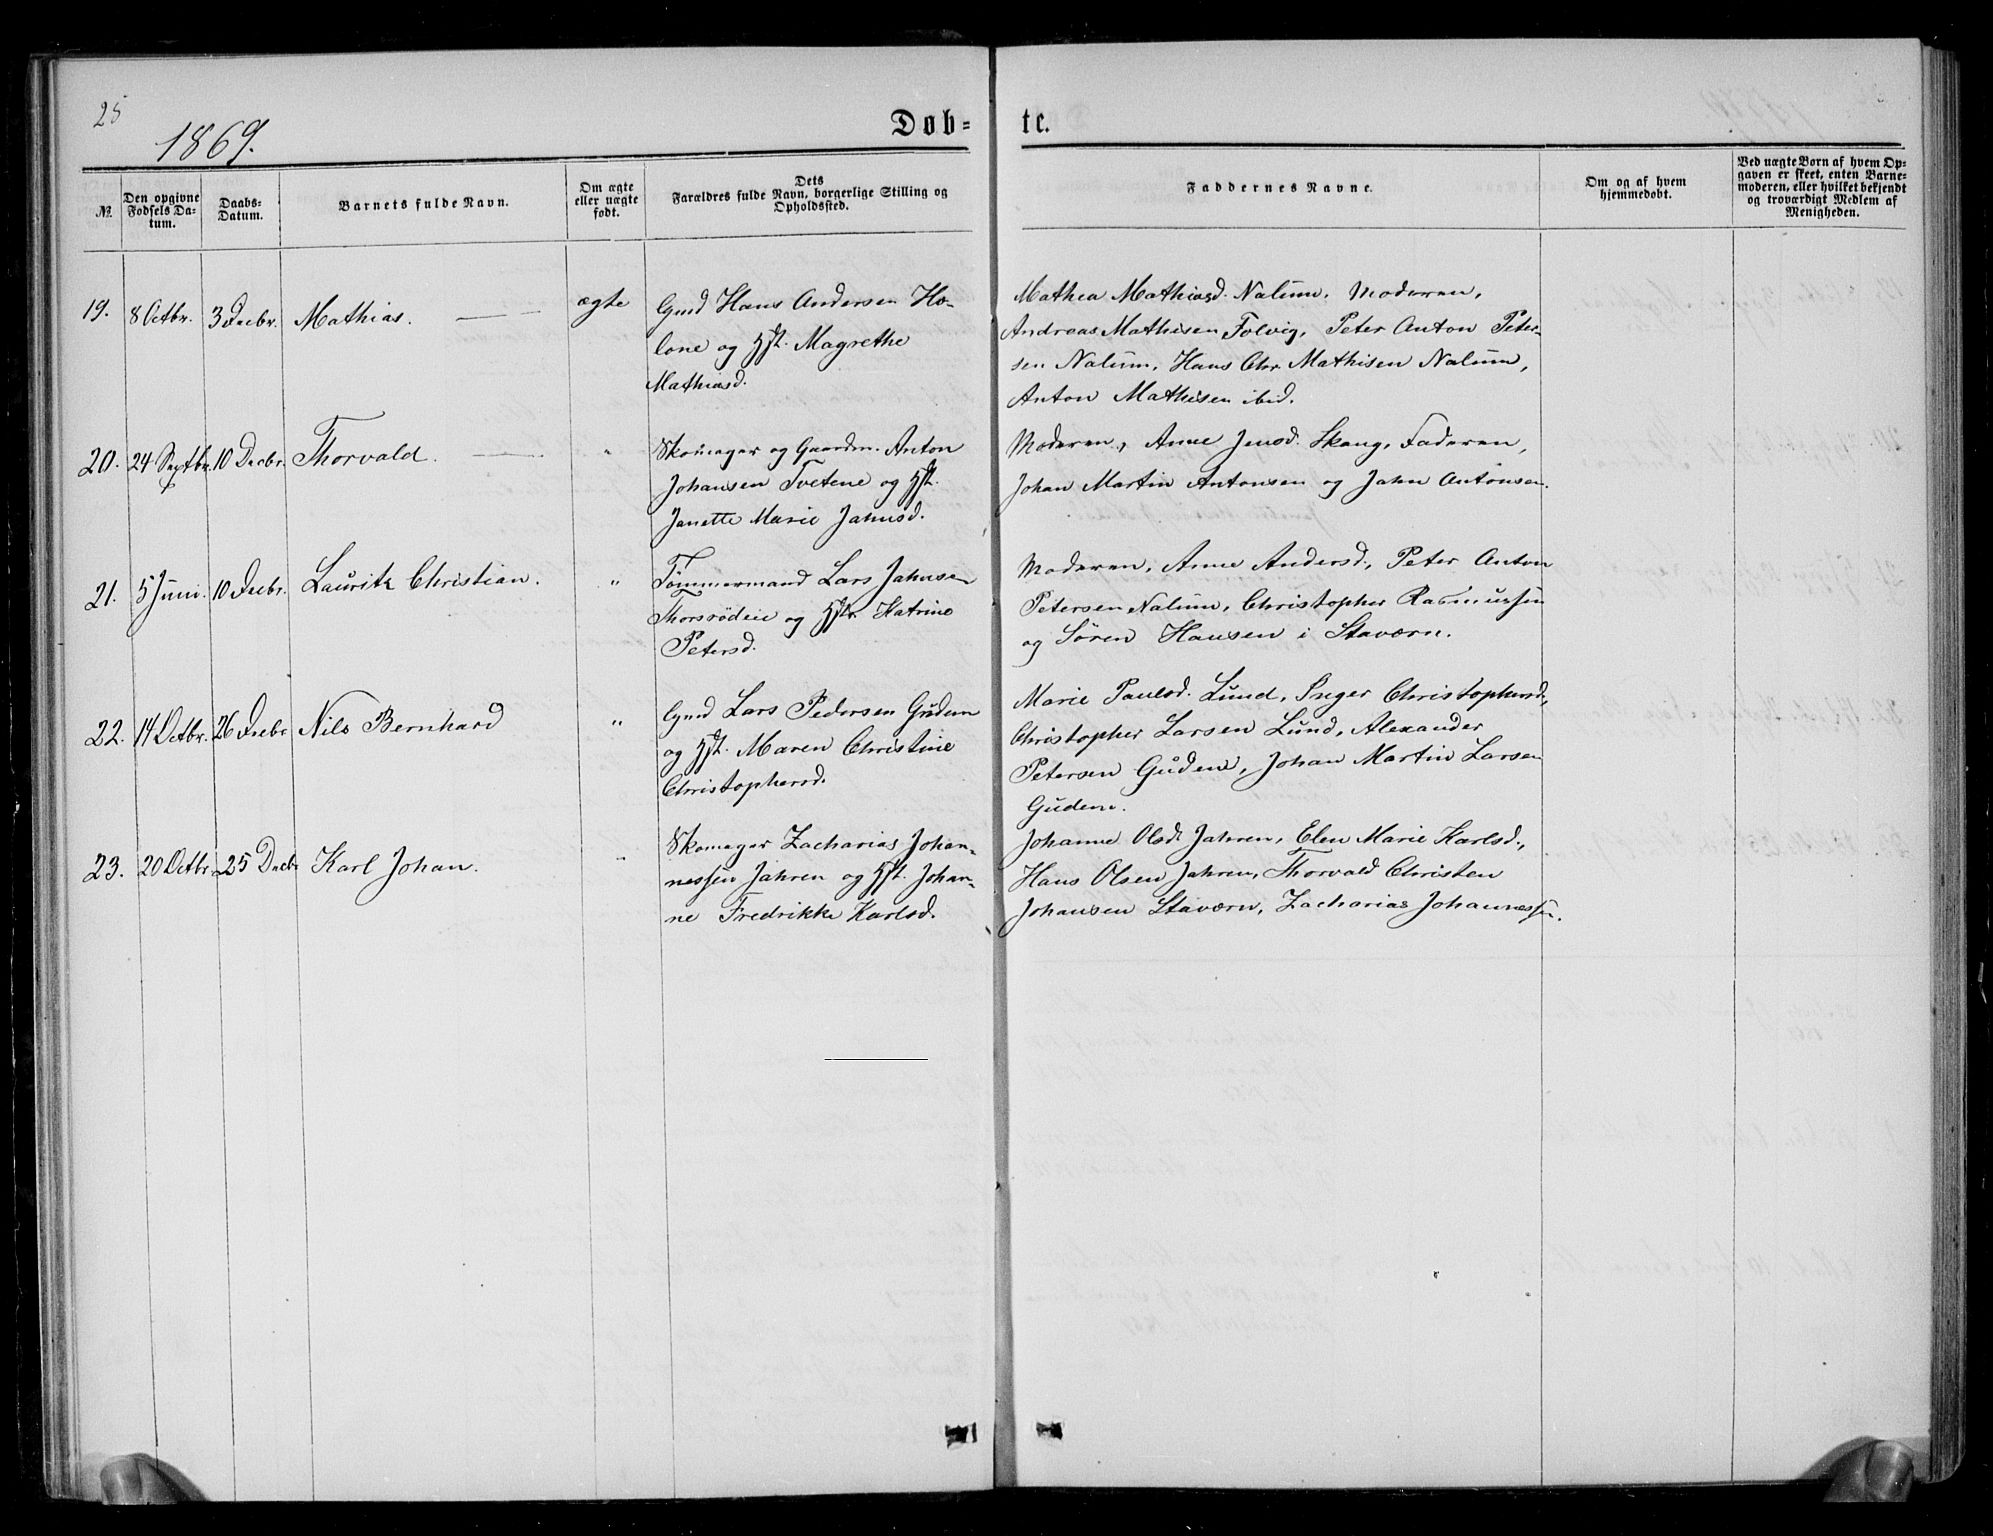 25
1869.
Døb-
te.
№
Den opgivne Fødsels Da-tum.
Daabs-Datum.
Barnets fulde Navn.
Om ægte eller uægte født.
Dets Forældres fulde Navn, borgerlige Stilling og Opholdssted.
Faddernes Navne.
Om og af hvem hjemmedøbt.
Ved uægte Børn af hvem Op-gaven er skeet, enten Barne-moderen, eller hvilket bekjendt og troværdigt Medlem af Menigheden.
19. 8 Octbr. 3 Decbr. Mathias. ægte
Gmd Hans Andersen Ho-
lone og Hst. Magrethe
Mathiasd.
Mathea Mathiasd. Nalum, Moderen,
Andreas Mathisen Folvig, Peter Anton Peter-
sen Nalum, Hans Chr. Mathisen Nalum,
Anton Mathisen ibid.
20. 24 Septbr. 10 Decbr. Thorvald. "
Skomager og Gaardm. Anton
Johansen Tvetene og Hst.
Janette Marie Jahnsd.
Moderen, Anne Jensd. Skang, Faderen,
Johan Martin Antonsen og Jahn Antonsen.
21. 5 Juni. 10 Decbr. Lauritz Christian. "
Tømmermand Lars Jahnsen
Thorsrødeie og Hstr. Katrine
Petersd.
Moderen, Anne Andersd., Peter Anton
Petersen Nalum, Christopher Rasmussen
og Søren Hansen i Staværn.
22. 14 Octbr. 26 Decbr Nils Bernhard "
Gmd Lars Pedersen Gudem
og Hst. Maren Christine
Christophersd.
Marie Paulsd. Lund, Inger Christophersd.,
Christopher Larsen Lund, Alexander
Petersen Gudem, Johan Martin Larsen
Gudem.
23. 20 Octbr. 25 Decbr Karl Johan. "
Skomager Zacharias Johan-
nessen Jahren og Hst. Johan-
ne Fredrikke Karlsd.
Johanne Olsd. Jahren, Elen Marie Karlsd.,
Hans Olsen Jahren, Thorvald Christen
Johansen Staværn, Zacharias Johannessen.